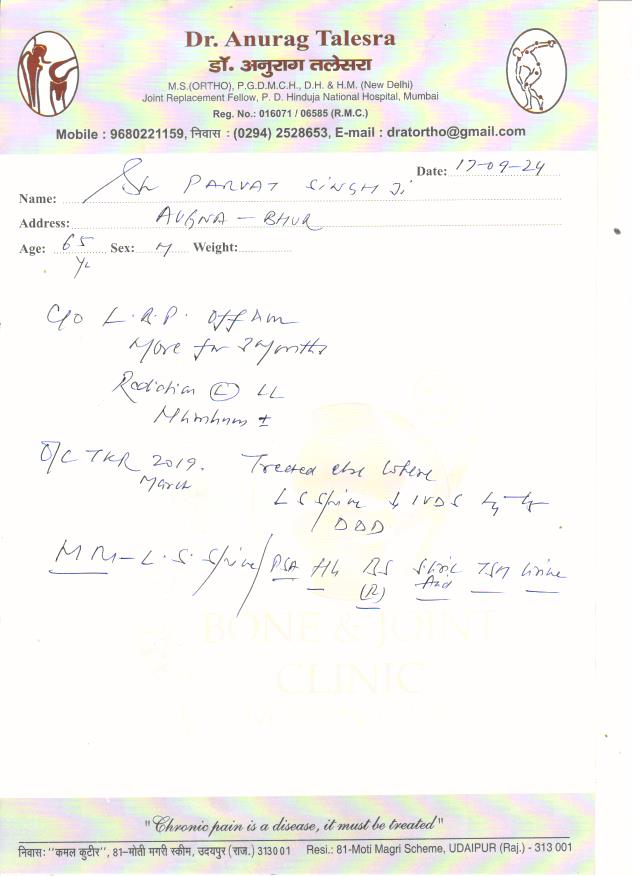 Dr. Anurag Talesra
डॉ. अनुराग तलेसरा
M.S.(ORTHO), P.G.D.M.C.H., D.H. & H.M. (New Delhi)
Joint Replacement Fellow, P. D. Hinduja National Hospital, Mumbai
Reg. No.: 016071 / 06585 (R.M.C.)
Mobile : 9680221159, निवास : (0294) 2528653, E-mail : dratortho@gmail.com
Date: 17-09-24
Name: Sh PARVAT SINGH Ji
Address: - BHUR
Age: 65 Sex: M Weight:
Yr
C/o L.B.P. off & on
More for 3 Months
Radiation (L) LL
±
O/C TKR 2019. Treated else where
March
L S Spine IVDS
DDD
L.S. Spine / PSA Hb BS Uric TSH Urine
(R) Acid
BONE & JOINT
CLINIC
"Chronic pain is a disease, it must be treated"
निवास: "कमल कुटीर", 81-मोती मगरी स्कीम, उदयपुर (राज.) 313001 Resi.: 81-Moti Magri Scheme, UDAIPUR (Raj.) - 313 001